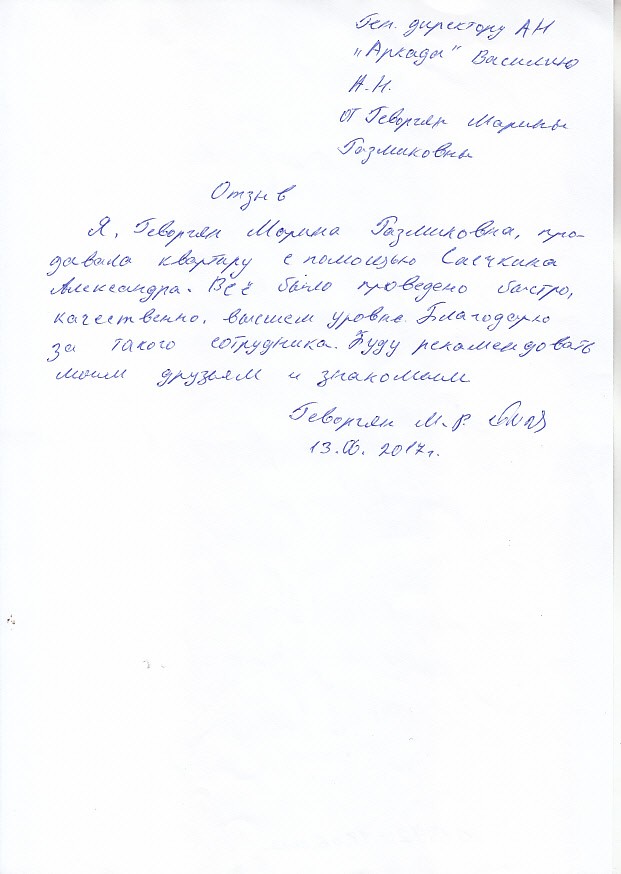 Ген. директору АН
"Аркада" Василию
А.Н.
от Геворгян Марины
Размиковны
Отзыв
Я, Геворгян Марина Размиковна, про-
давала квартару с помощью
Александра. Всё было проведено быстро,
качественно, высшем уровне. Благодарю
за такого сотрудника. Буду рекамендовать
моим друзьям и знакомым
Геворгян М.Р.
13.06.2017г.